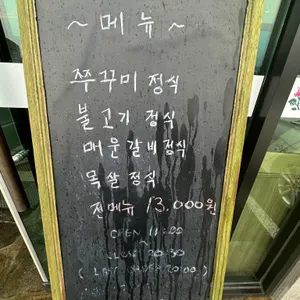 ~ 메뉴 ~
쭈꾸미 정식
불고기 정식
매운갈비정식
목살 정식
전메뉴 13,000원
OPEN 11:00
CLOSE 20:30
(LAST ORDER 20:00)